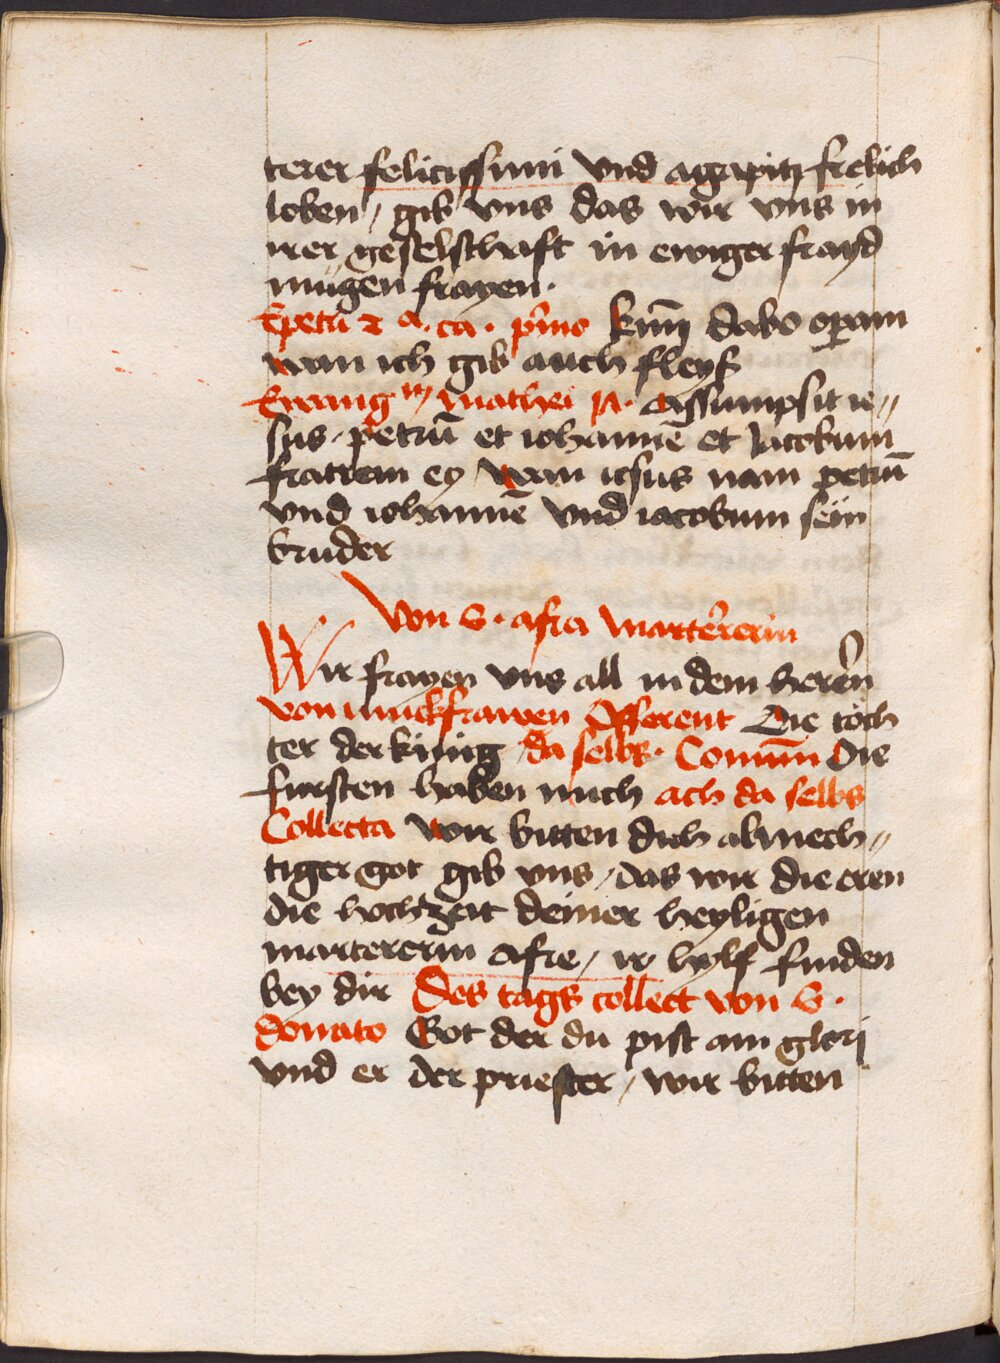 terer felicissimi vnd agapitz frelich
loben / gib vns das wir vns in
irer geselschaft in ewiger frayd
mügen frayen.
petri 2 a. ca. primo dabo operam
wan ich gib auch fleyß
Ewang mathei 17. Assumpsit ie„
sus petrū et iohannē et Jacobum
fratrem ey wan iesus nam petrū
vnd iohannē vnd iacobum sein
bruder
Von S. afra martrerin
Wir frayen vns all in dem herrn
von iunckfrawen Offerent Die töch
ter der künig da selbs. Comūn Die
fursten haben mich ach da selbs
Collecta wir bitten dich almech„
tiger got gib vns / das wir die eren
die hochzeit deiner heyligen
martererin Afre / ir hylf finden
bey dir Des tags collect von S.
donato Got der du pist ain glori
vnd er der priester / wir bitten